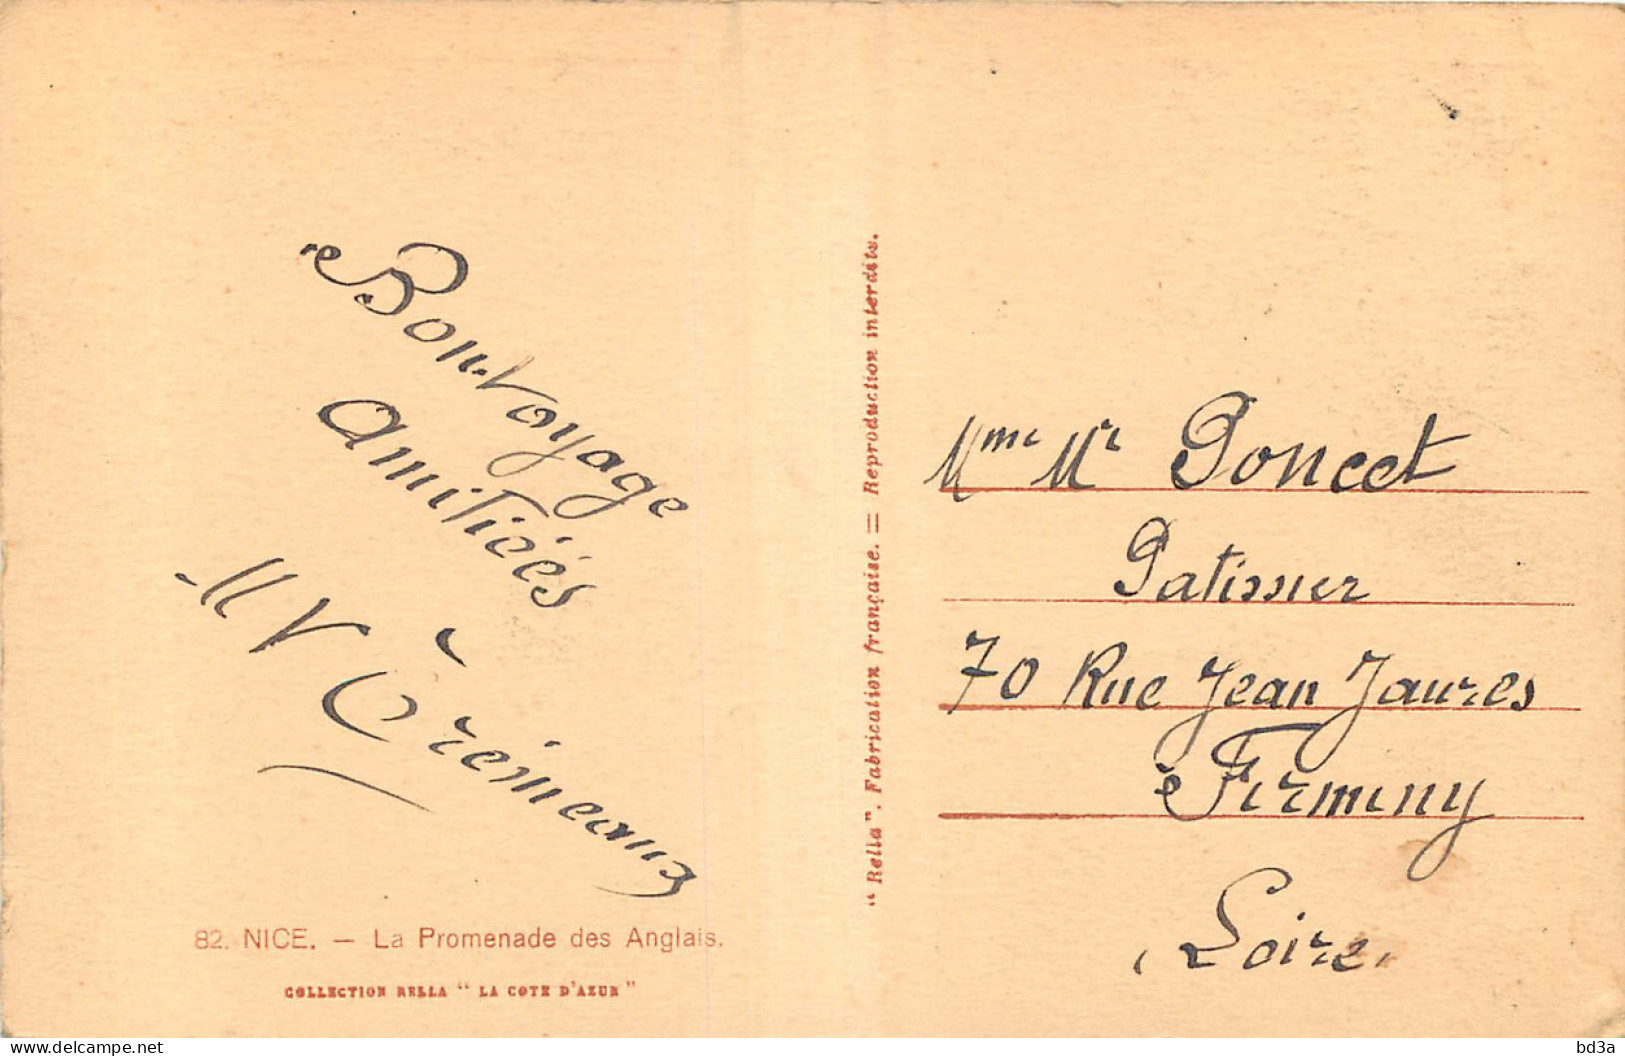 Bon voyage
amitiées
M V Crémeaux
82. NICE. — La Promenade des Anglais.
COLLECTION RELLA “ LA COTE D'AZUR ”
“ Rella ”. Fabrication française. = Reproduction interdite.
Mme Mr Poncet
Patissier
70 Rue Jean Jaures
Firminy
(Loire)
www.delcampe.net
bd3a